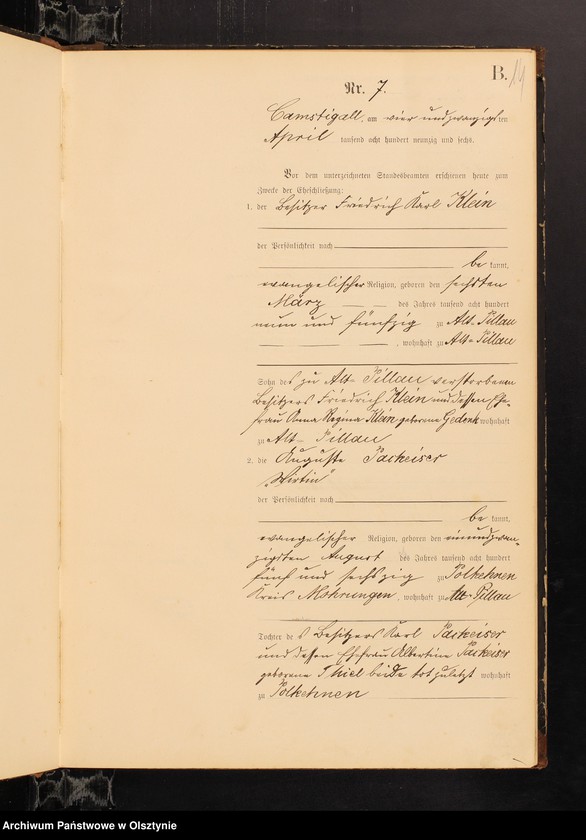 B. 14
Nr. 7.
Camstigall, am vier und zwanzigsten
April tausend acht hundert neunzig und sechs.
Vor dem unterzeichneten Standesbeamten erschienen heute zum
Zwecke der Eheschließung:
1. der Besitzer Friedrich Karl Klein
der Persönlichkeit nach
be kannt,
evangelischer Religion, geboren den sechsten
März des Jahres tausend acht hundert
neun und fünfzig zu Alt-Pillau
, wohnhaft zu Alt-Pillau
Sohn des zu Alt-Pillau verstorbenen
Besitzers Friedrich Klein und dessen Ehe-
frau Anna Regina Klein geborene Gedenk wohnhaft
zu Alt-Pillau
2. die Auguste Packeiser
"Wirtin"
der Persönlichkeit nach
be kannt,
evangelischer Religion, geboren den einundzwan-
zigsten August des Jahres tausend acht hundert
fünf und sechszig zu Polkehnen
Kreis Mohrungen, wohnhaft zu Alt-Pillau
Tochter des Besitzers Karl Packeiser
und dessen Ehefrau Albertine Packeiser
geborene Thiel beide tot zuletzt wohnhaft
zu Polkehnen
Archiwum Państwowe w Olsztynie